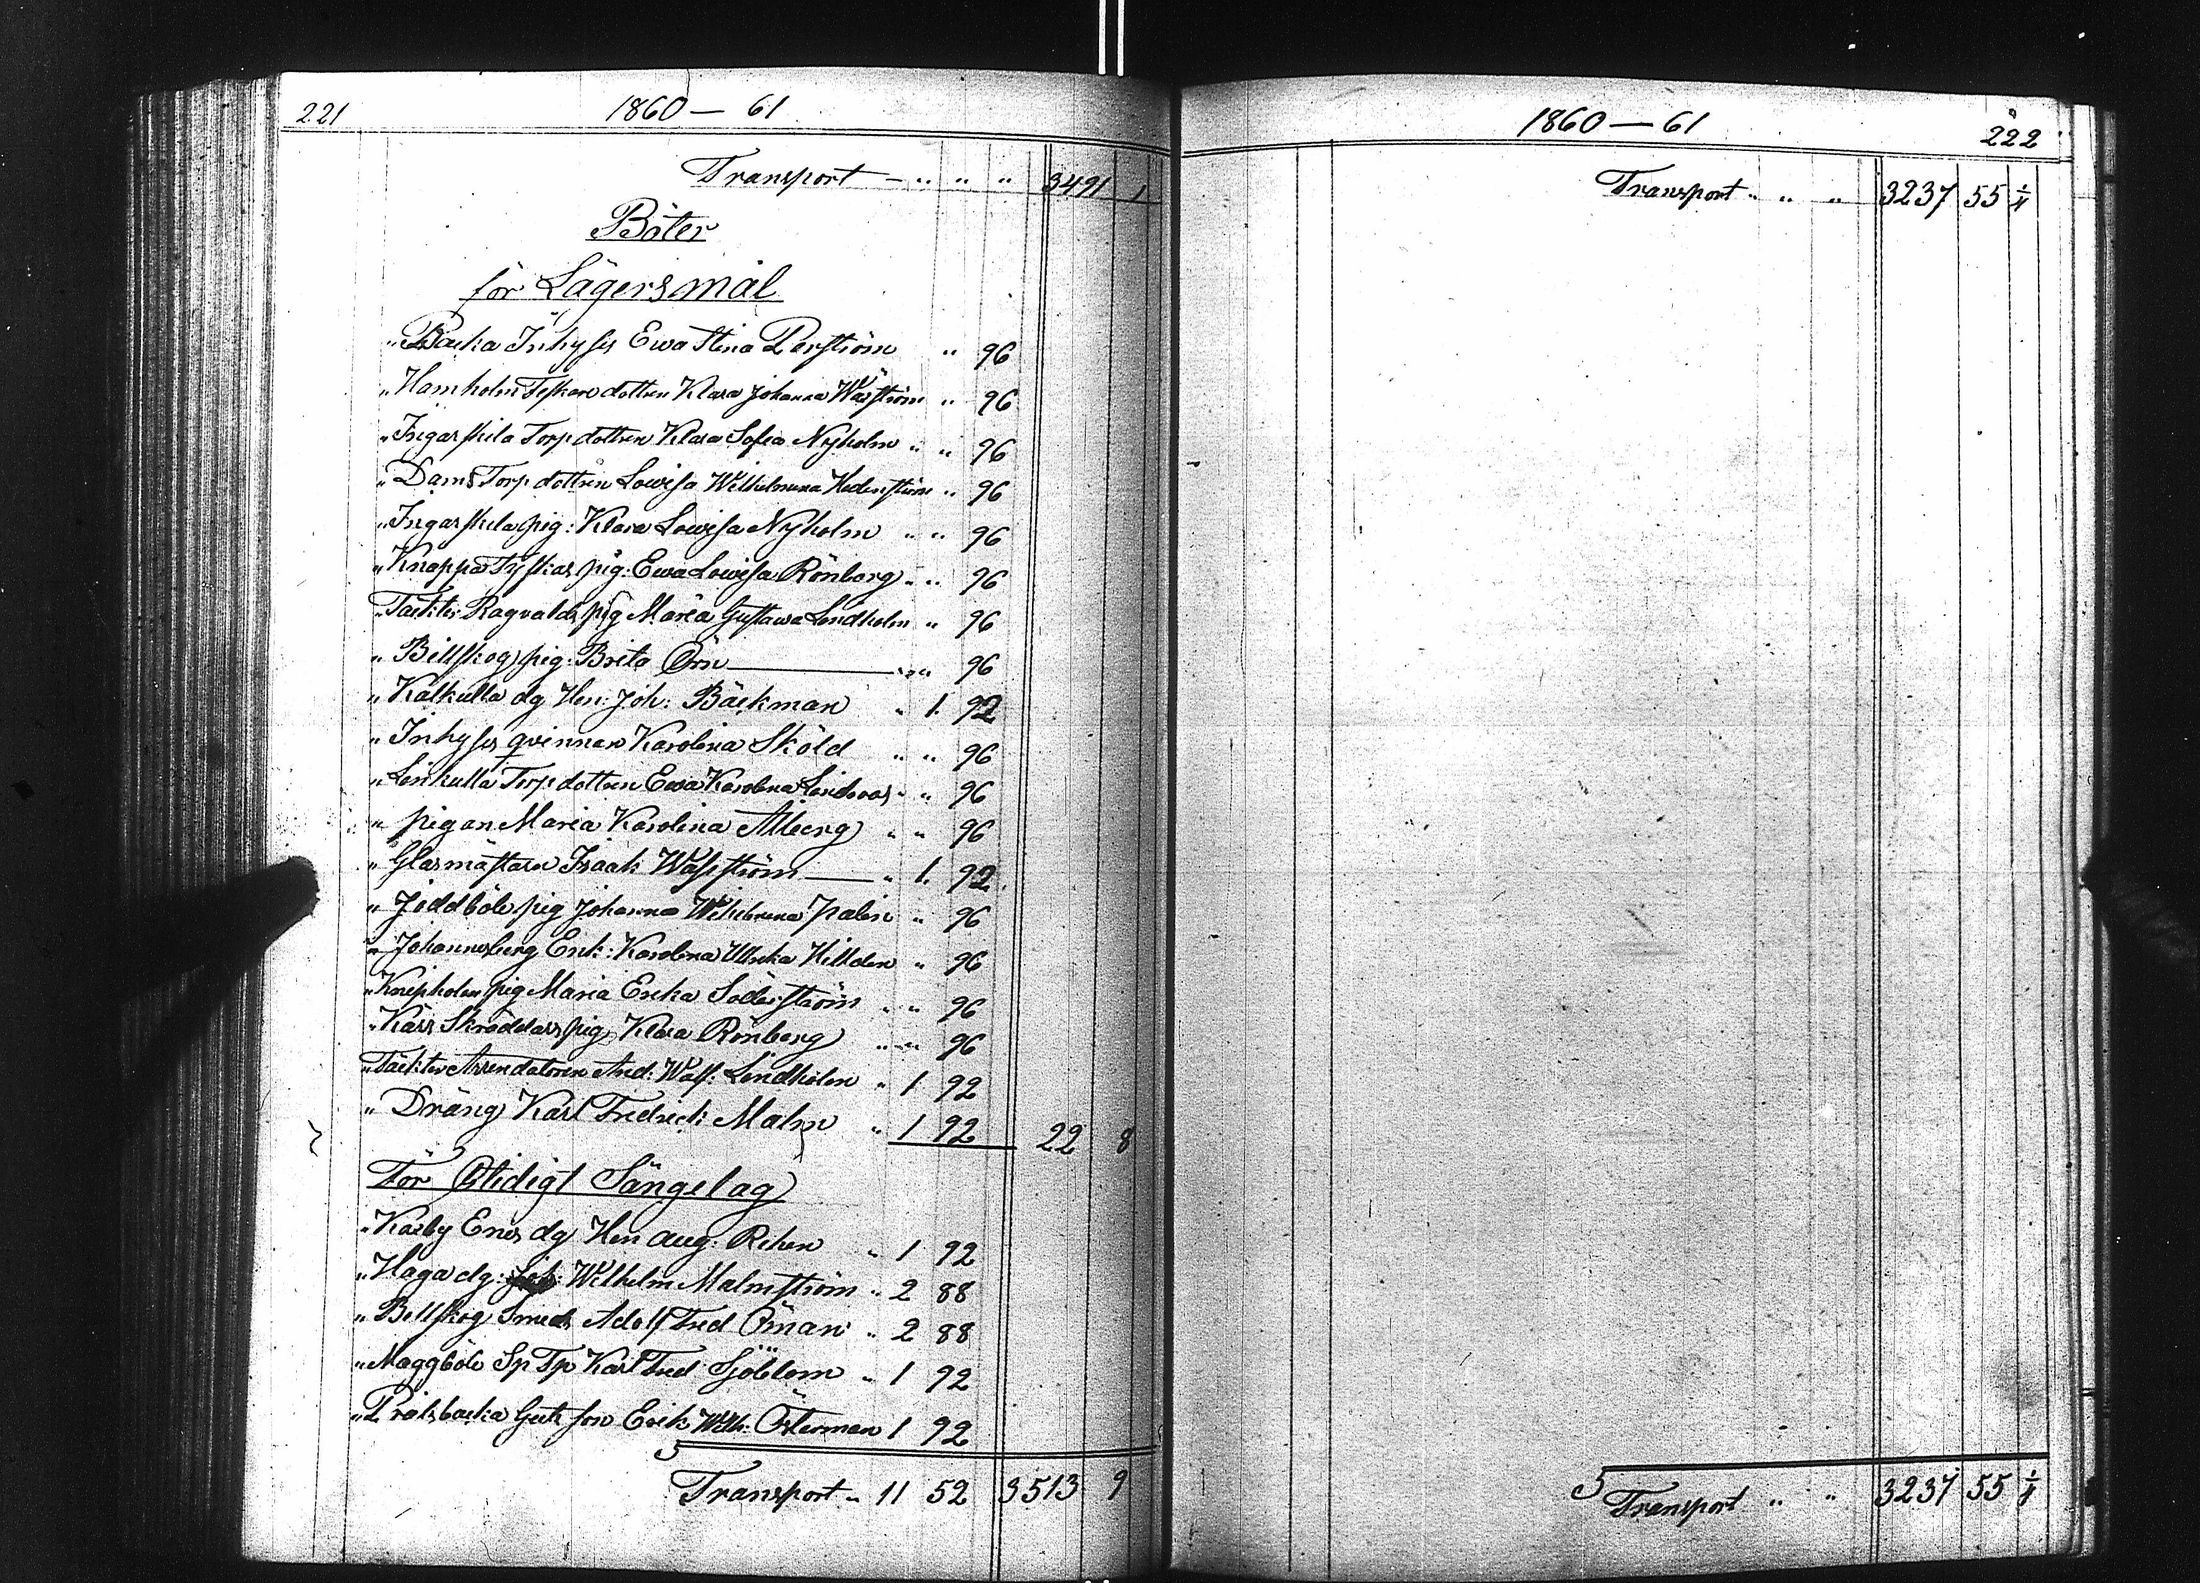 221
1860 — 61
Transport — " " " 3491 1
Böter
för Lägersmål
" Backa Inhyses Ewa Stina Perström " 96
" Hamholm Fiskare dottren Klara Johanna Wäström " 96
" Ingarskila Torp dottren Klara Sofia Nyholm " " 96
" Dams Torp dottren Lowisa Wilhelmina Hedenström " 96
" Ingarskila pig: Klara Lowisa Nyholm " " 96
" Knappa Tyskas pig: Ewa Lowisa Rönberg " " 96
" Täckter Ragvalds pig Maria Gustawa Lindholm " 96
" Billskog pig: Brita Örn " " 96
" Kalkulla dg Hen: Joh: Bäckman " 1. 92
" Inhyses qvinnan Karolina Sköld " " 96
" Linkulla Torp dottren Ewa Karolina Lindroos " " 96
" pigan Maria Karolina Alberg " " 96
" Glasmästare Isaak Wasström — " 1. 92
" Joddböle pig Johanna Wilhelmina Palin " 96
" Johannesberg Enk: Karolina Ulrika Hilldén " 96
" Knipholm pig Maria Erika Söderström " " 96
" Kärr Skräddars pig Klara Rönberg " " 96
" Täckter Arrendatoren And: Walf: Lindholm " 1 92
" Dräng Karl Fredrick Malm " 1 92 22 8
För Otidigt Sängelag
" Karby Ers dg Hen Aug: Rehn " 1 92
" Haga dg: Wilhelm Malmström " 2 88
" Billskog Smeds Adolf Fred Öman " 2 88
" Maggböle Sp Tp Karl Fred Sjöblom " 1 92
" Prästbacka son Erik Wilh: Österman 1 92
S
Transport " 11 52 3513 9
1860 — 61
222
Transport " " " 3237 55 1/4
S
Transport " " 3237 55 1/4